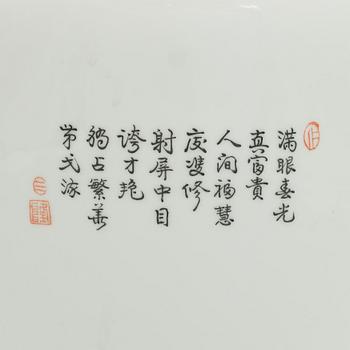 满眼春光
真富貴
人间福慧
庆双修
射屏中目
誇才艳
独占繁華
第弌家